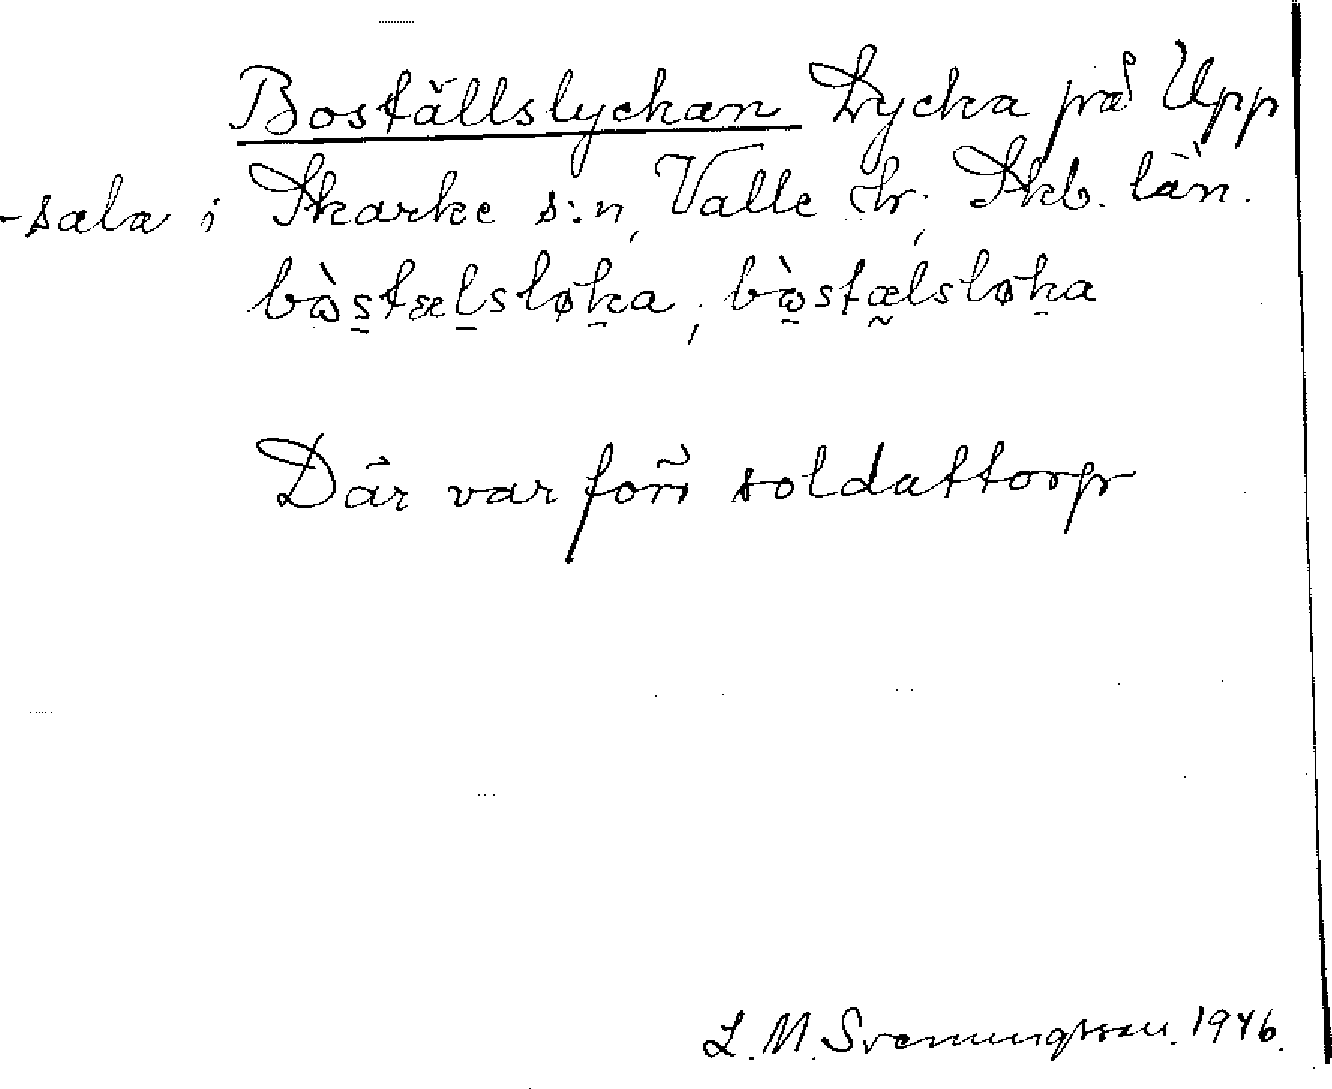 Boställslyckan Lycka på Upp
-sala i Skarke s:n, Valle hr, Skb. län.
bòstælsløka, bòstælsløka
Där var förr soldattorp
L. M. Svenungsson. 1946.